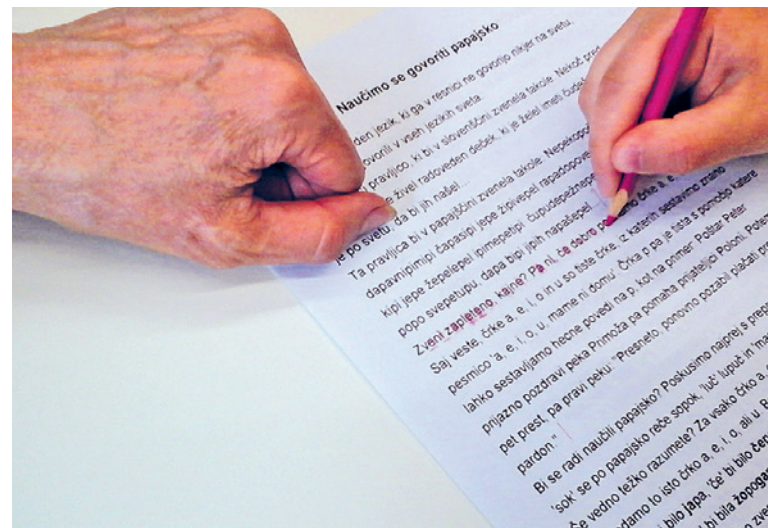 Naučimo se govoriti papajsko
den jezik, ki ga v resnici ne govorijo nikjer na svetu,
govorili v vseh jezikih sveta
pravljico, ki bi v slovenščini zvenela takole. Nekoč pred
živel radoveden deček, ki je želel imeti
je po svetu, da bi jih našel...
Ta pravljica bi v papajščini zvenela takole.
dapavnipimipi čapasipi jepe žipivepel
kipi jepe žepelepel ipimepetipi
popo svepetupu, dapa bipi jipih napašepel
Zveni zapleteno, kajne? Pa ni, če dobro črke a, e,
Saj veste, črke a, e, i, o in u so tiste črke, iz katerih sestavimo znano
pesmico 'a, e, i, o, u, mame ni domu'. Črka p pa je tista s pomočjo katere
lahko sestavljamo hecne povedi na p, kot na primer: Poštar Peter
prijazno pozdravi peka Primoža pa pomaha prijateljici Poloni. Potem
pet prest, pa pravi peku: "Presneto, ponovno pozabil plačati
pardon."
Bi se radi naučili papajsko? Poskusimo najprej s
'sok' se po papajsko reče sopok, 'luč' lupuč in
vedno težko razumete? Za vsako črko a,
damo to isto črko a, e, i, o, ali u.
bilo japa, 'če' bi bilo
bi bila